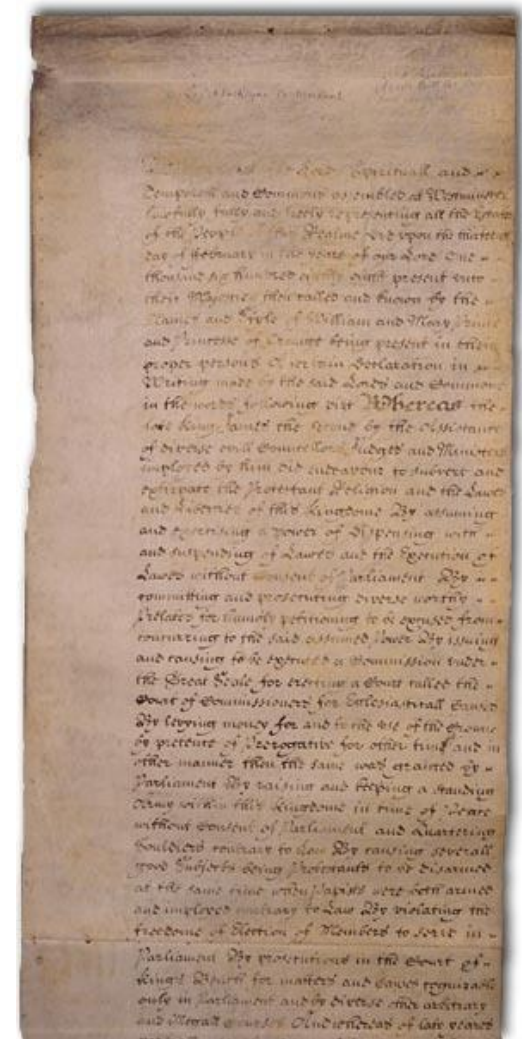 the Lords Spirituall and
Temporall and Commons assembled at Westminster
lawfully fully and freely representing all the Estates
of the People of this Realme did upon the thirteenth
day of February in the yeare of our Lord One
thousand six hundred eighty eight present unto
their Majesties then called and known by the
Names and Style of William and Mary Prince
and Princesse of Orange being present in their
proper persons A certain Declaration in
Writing made by the said Lords and Commons
in the words following vizt Whereas the
late King James the second by the Assistance
of diverse evill Councellors Judges and Ministers
imployed by him did endeavour to subvert and
extirpate the Protestant Religion and the Lawes
and Liberties of this Kingdome By assuming
and exercising a power of dispensing with
and suspending of Lawes and the Execution of
Lawes without Consent of Parliament By
committing and prosecuting diverse worthy
Prelates for humbly petitioning to be excused from
concurring to the said assumed Power By issuing
and causing to be executed a Commission under
the Great Seale for erecting a Court called the
Court of Commissioners for Ecclesiasticall Causes
By levying money for and to the use of the Crowne
by pretence of Prerogative for other time and in
other manner then the same was granted by
Parliament By raising and keeping a standing
Army within this Kingdome in time of Peace
without Consent of Parliament and Quartering
Souldiers contrary to Law By causing severall
good Subjects being Protestants to be disarmed
at the same time when Papists were both armed
and imployed contrary to Law By violating the
freedome of Election of Members to serve in
Parliament By prosecutions in the Court of
Kings Bench for matters and Causes cognizable
only in Parliament and by diverse other arbitrary
and Illegall Courses And whereas of late yeares